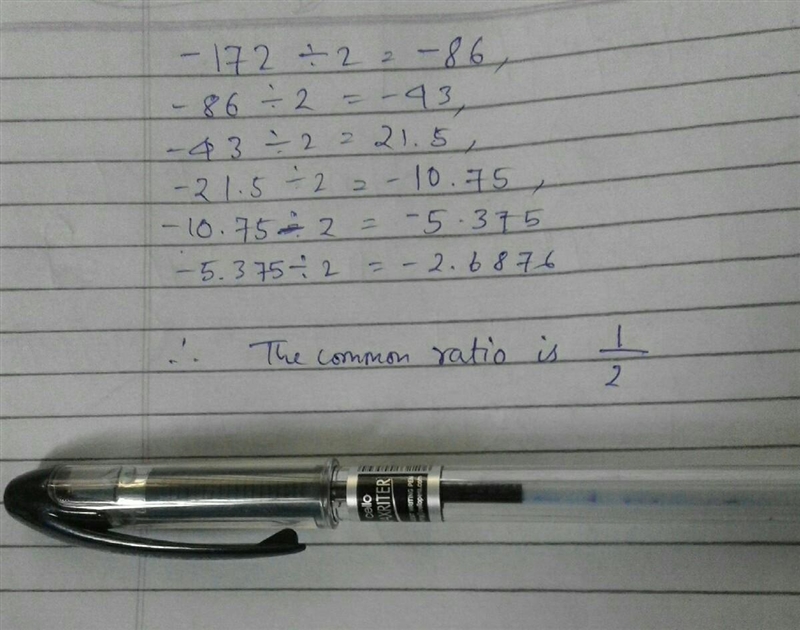 -172 ÷ 2 = -86,
-86 ÷ 2 = -43,
-43 ÷ 2 = 21.5,
-21.5 ÷ 2 = -10.75,
-10.75 ÷ 2 = -5.375
-5.375 ÷ 2 = -2.6876
∴ The common ratio is 1/2
cello